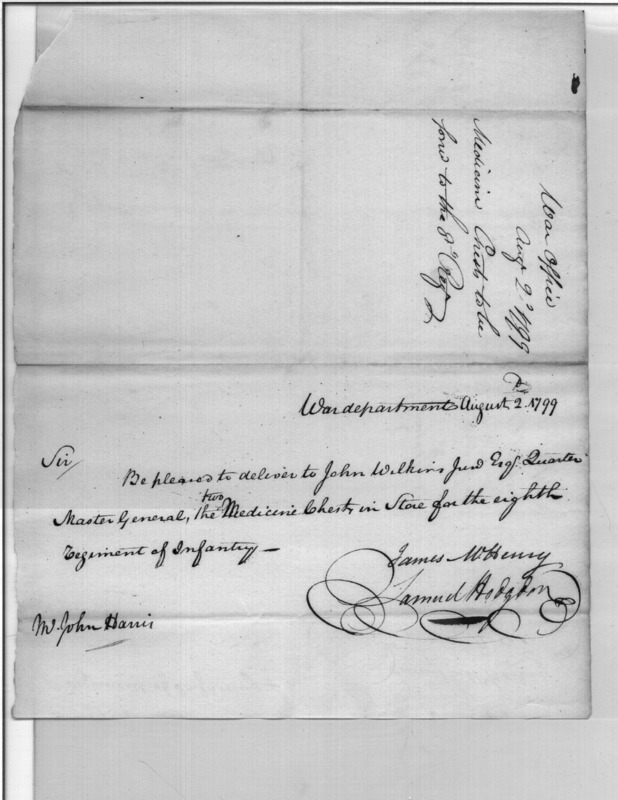 War Office
Aug 2d 1799
Medicine Chests to be
forw to the 8th Reg
War department August 2. 1799
Sir
Be pleased to deliver to John Wilkins Junr Esqr. Quarter
two
Master General, the Medicine Chests in Store for the eighth
Regiment of Infantry —
James McHenry
Samuel Hodgdon
Mr. John Harris